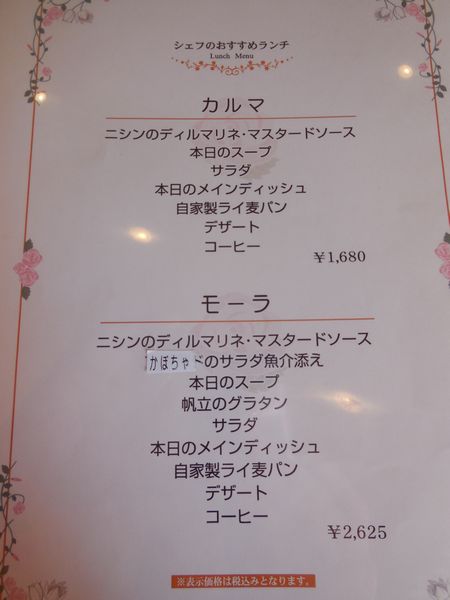 シェフのおすすめランチ
Lunch Menu
カルマ
ニシンのディルマリネ・マスタードソース
本日のスープ
サラダ
本日のメインディッシュ
自家製ライ麦パン
デザート
コーヒー
￥1,680
モーラ
ニシンのディルマリネ・マスタードソース
かぼちゃのサラダ魚介添え
本日のスープ
帆立のグラタン
サラダ
本日のメインディッシュ
自家製ライ麦パン
デザート
コーヒー
￥2,625
※表示価格は税込みとなります。